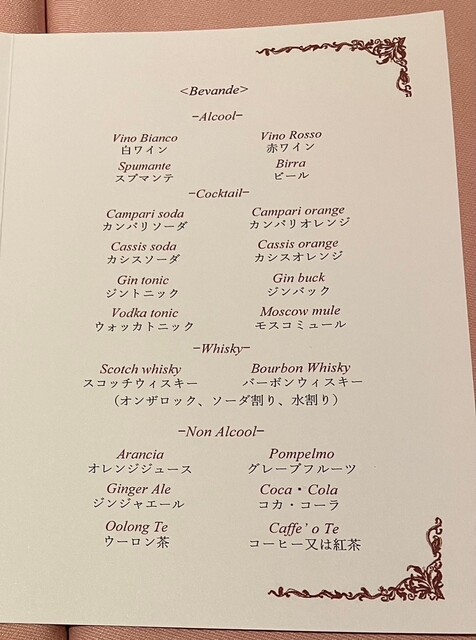 <Bevande>
−Alcool−
Vino Bianco Vino Rosso
白ワイン 赤ワイン
Spumante Birra
スプマンテ ビール
−Cocktail−
Campari soda Campari orange
カンパリソーダ カンパリオレンジ
Cassis soda Cassis orange
カシスソーダ カシスオレンジ
Gin tonic Gin buck
ジントニック ジンバック
Vodka tonic Moscow mule
ウォッカトニック モスコミュール
−Whisky−
Scotch whisky Bourbon Whisky
スコッチウィスキー バーボンウィスキー
（オンザロック、ソーダ割り、水割り）
−Non Alcool−
Arancia Pompelmo
オレンジジュース グレープフルーツ
Ginger Ale Coca・Cola
ジンジャエール コカ・コーラ
Oolong Te Caffe’ o Te
ウーロン茶 コーヒー又は紅茶